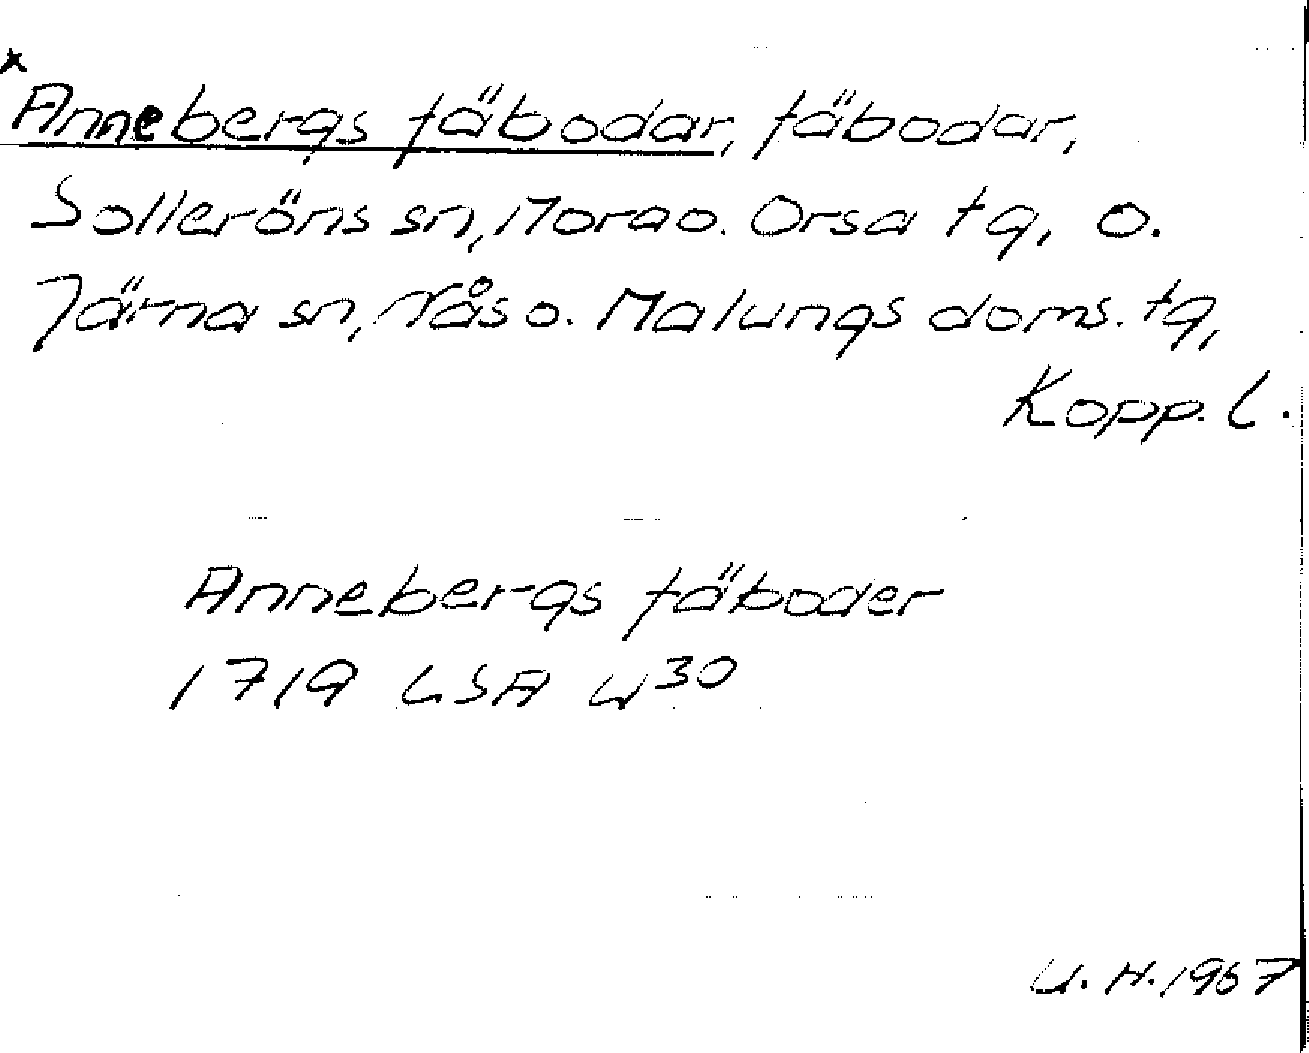 x
Annebergs fäbodar, fäbodar,
Solleröns sn, Mora o. Orsa tg, o.
Järna sn, Nås o. Malungs doms. tg,
Kopp. l.
Annebergs fäboder
1719 LSA W30
U. H. 1967